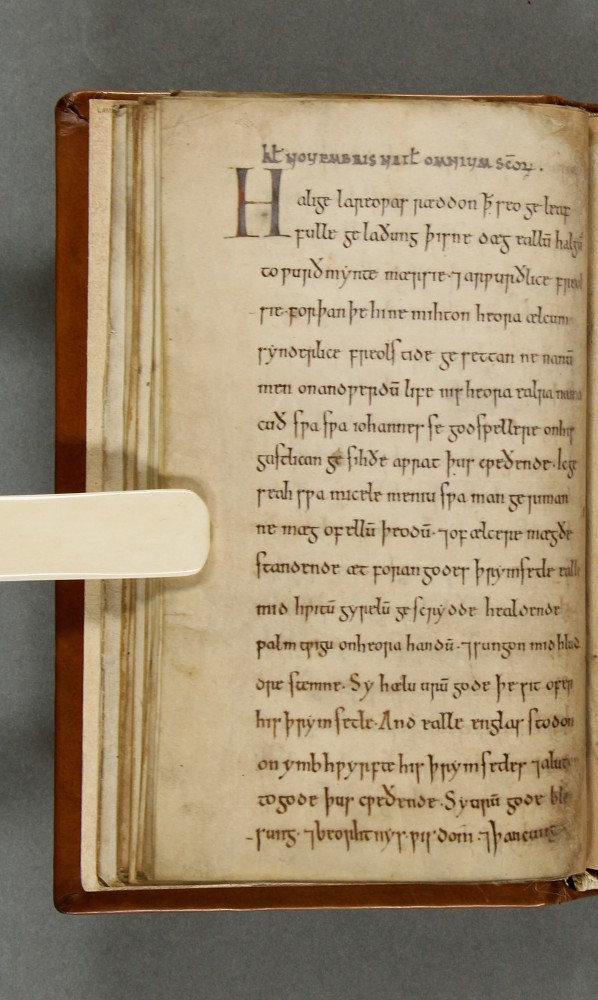 kł NOVEMBRIS NAT̄ OMNIUM SC̄OꝜ.
Halige lareowas ræddon ꝥ seo geleaf
fulle gelaðung þisne dæg eallū halgū
to wurðmynte mærsie ⁊ arwurðlice freol
sie. forþan þe hi ne mihton heora ælcum
synderlice freols tide gesettan ne nanū
men on andwerdū life nis heora ealra nama
cuð swa swa iohannes se godspellere on his
gastlican gesihðe awrat þus cweðende. Ic ge
seah swa micele meniu swa man geriman
ne mæg of ellū þeodū. ⁊ of ælcere mægðe
standende æt foran godes þrymsetle ealle
mid hwitū gyrelū gescrydde healdende
palm twigu on heora handū. ⁊ sungon mid hlud
dre stemne. Sy hælu urū gode þe sit ofer
his þrymsetle. And ealle englas stodon
on ymbhwyrfte his þrymsetles ⁊ aluton
to gode þus cweðende. Sy urū gode ble
sung. ⁊ beorhtnys. wisdom. ⁊ þancung